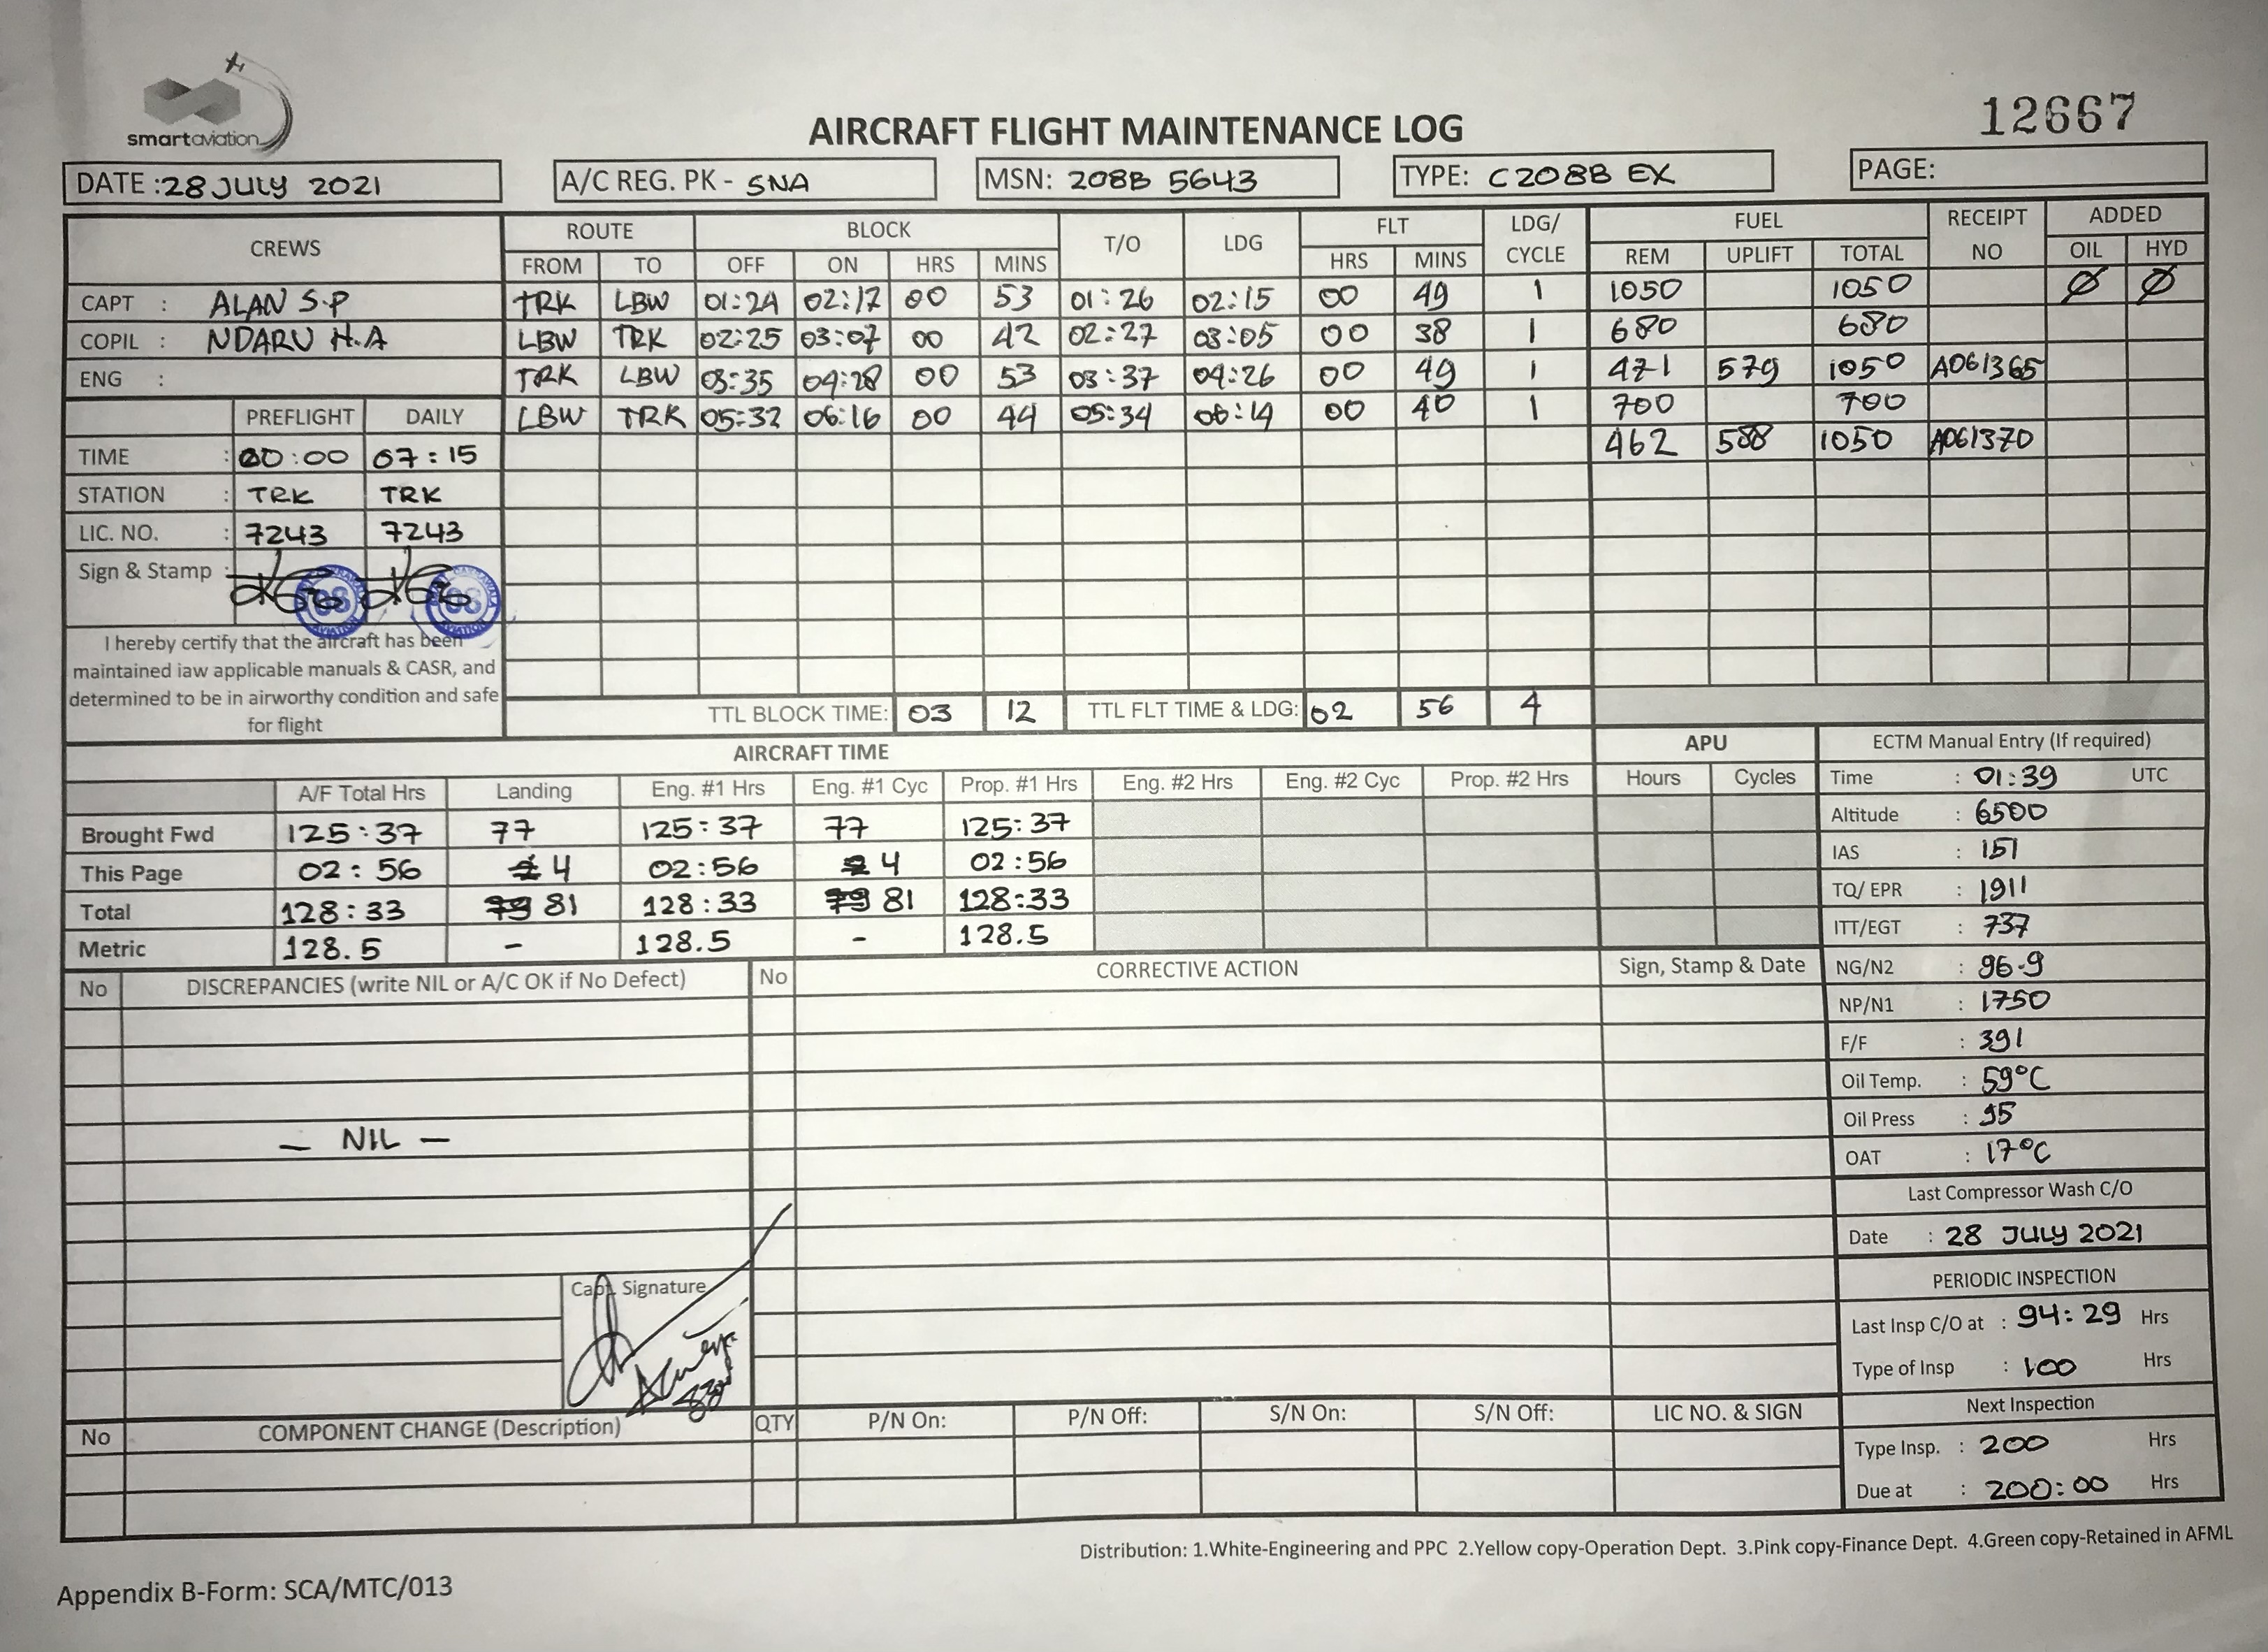 smartaviation
12667
AIRCRAFT FLIGHT MAINTENANCE LOG
DATE : 28 JULY 2021 A/C REG. PK - SNA MSN: 208B 5643 TYPE: C208B EX PAGE:
CREWS ROUTE BLOCK T/O LDG FLT LDG/ CYCLE FUEL RECEIPT NO ADDED
FROM TO OFF ON HRS MINS HRS MINS REM UPLIFT TOTAL OIL HYD
CAPT : ALAN S.P TRK LBW 01:24 02:17 00 53 01:26 02:15 00 49 1 1050 1050 Ø Ø
COPIL : NDARU H.A LBW TRK 02:25 03:07 00 42 02:27 03:05 00 38 1 680 680
ENG : TRK LBW 03:35 04:28 00 53 03:37 04:26 00 49 1 471 579 1050 A061365
LBW TRK 05:32 06:16 00 44 05:34 06:14 00 40 1 700 700
462 588 1050 A061370
PREFLIGHT DAILY
TIME : 00:00 07:15
STATION : TRK TRK
LIC. NO. : 7243 7243
Sign & Stamp :
08 AVIATION 08 AVIATION
I hereby certify that the aircraft has been
maintained iaw applicable manuals & CASR, and
determined to be in airworthy condition and safe
for flight
TTL BLOCK TIME: 03 12 TTL FLT TIME & LDG: 02 56 4
AIRCRAFT TIME APU ECTM Manual Entry (If required)
A/F Total Hrs Landing Eng. #1 Hrs Eng. #1 Cyc Prop. #1 Hrs Eng. #2 Hrs Eng. #2 Cyc Prop. #2 Hrs Hours Cycles
Brought Fwd 125:37 77 125:37 77 125:37
This Page 02:56 4 02:56 4 02:56
Total 128:33 79 81 128:33 79 81 128:33
Metric 128.5 - 128.5 - 128.5
Time : 01:39 UTC
Altitude : 6500
IAS : 151
TQ/ EPR : 1911
ITT/EGT : 737
NG/N2 : 96.9
NP/N1 : 1750
F/F : 391
Oil Temp. : 59°C
Oil Press : 95
OAT : 17°C
Last Compressor Wash C/O
Date : 28 JULY 2021
PERIODIC INSPECTION
Last Insp C/O at : 94:29 Hrs
Type of Insp : 100 Hrs
Next Inspection
Type Insp. : 200 Hrs
Due at : 200:00 Hrs
No DISCREPANCIES (write NIL or A/C OK if No Defect) No CORRECTIVE ACTION Sign, Stamp & Date
— NIL —
Capt. Signature
No COMPONENT CHANGE (Description) QTY P/N On: P/N Off: S/N On: S/N Off: LIC NO. & SIGN
Distribution: 1.White-Engineering and PPC 2.Yellow copy-Operation Dept. 3.Pink copy-Finance Dept. 4.Green copy-Retained in AFML
Appendix B-Form: SCA/MTC/013